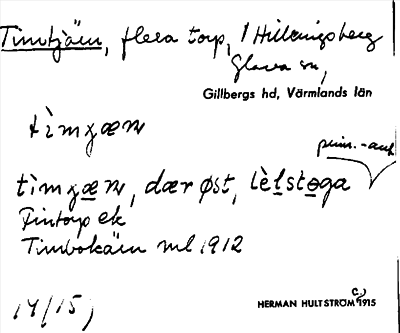 Timtjäin, flera torp, / Hillringsberg
Glava sn,
Gillbergs hd, Värmlands län
tìmɣæn
prim.-ant
tìmɣæn, dær øst, lèlstoga
Fintorp ek
Timbokäin ml 1912
14/15)
HERMAN HULTSTRÖM 1915